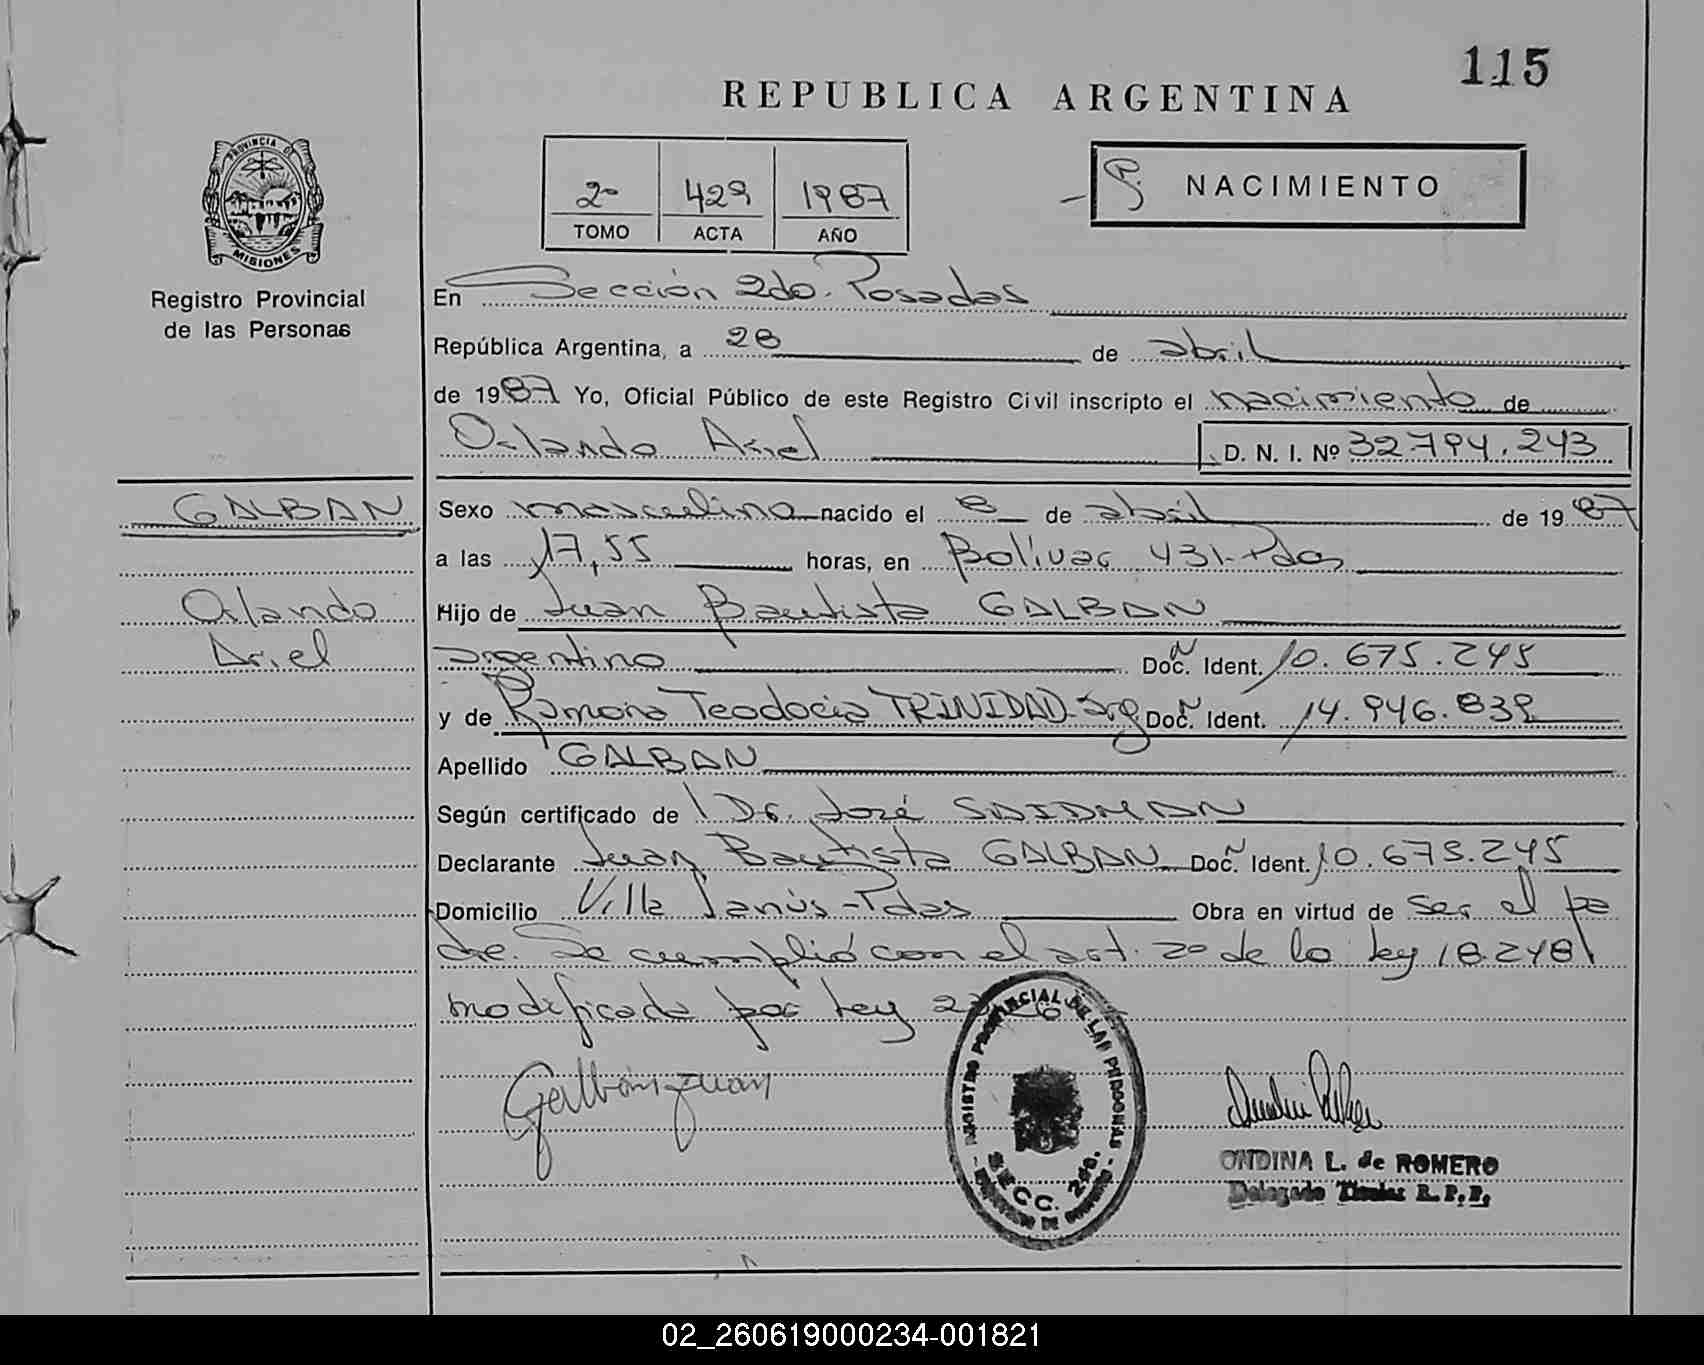 115
REPUBLICA ARGENTINA
2º 429 1987
TOMO ACTA AÑO
NACIMIENTO
PROVINCIA DE MISIONES
Registro Provincial
de las Personas
En Sección 2do. Posadas
República Argentina, a 28 de abril
de 1987 Yo, Oficial Público de este Registro Civil inscripto el nacimiento de
Orlando Ariel D. N. I. Nº 32.794.243
GALBAN
Orlando
Ariel
Sexo masculino nacido el 8 de abril de 1987
a las 17,55 horas, en Bolívar 431-Pdas
Hijo de Juan Bautista GALBAN
argentino Doc. Ident. 10.675.245
y de Ramona Teodocia TRINIDAD-arg Doc. Ident. 14.946.839
Apellido GALBAN
Según certificado de Dr. José SAIDMAN
Declarante Juan Bautista GALBAN Doc. Ident. 10.675.245
Domicilio Villa Lanús-Pdas Obra en virtud de ser el pa
dre. Se cumplió con el art. 2º de la ley 18.248
modificada por ley
Galban Juan
REGISTRO PROVINCIAL DE LAS PERSONAS
SECC. 2da.
ONDINA L. de ROMERO
Delegado Titular R. P. P.
02_260619000234-001821